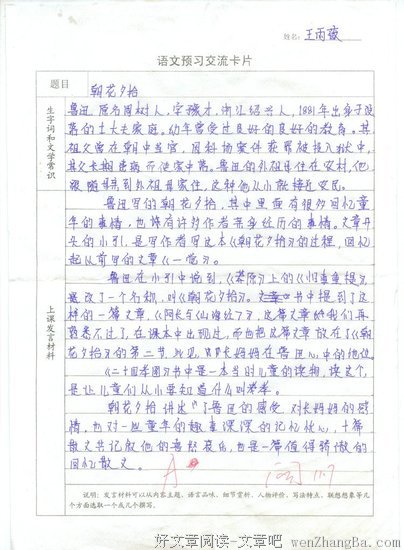 姓名: 王雨薇
语文预习交流卡片
题目
朝花夕拾
生字词和文学常识
鲁迅 原名周树人，字豫才，浙江绍兴人，1881年出生于没
落的士大夫家庭。幼年曾受过良好的良好的教育。其
祖父曾在朝中当官，因科场案件获罪被投入狱中，
其父长期患病而使家中落。鲁迅的外祖母住在农村，他
跟随母到外祖母家住，这种他从小就接近农民。
上课发言材料
鲁迅写的朝花夕拾，其中里面有很多回忆童
年的事情，也讲有许多作者亲身经历的事情。文章开
头的小引，是写作者写这本《朝花夕拾》的过程，回忆
起从前写的文章《一觉》。
鲁迅在小引中说到，《莽原》上的《旧事重提》
是改了一个名称，叫《朝花夕拾》。书中提到了这
样的一篇文章，《阿长与山海经》，这篇文章给我们再
熟悉不过了，在课本中出现过，而他把这篇文章放在了《朝
花夕拾》的第二节，可见 长妈妈在鲁迅心中的地位
《二十四孝图》书中是一本当时儿童的读物，读这个
是让儿童们从小要知道什么叫孝。
朝花夕拾 讲述了鲁迅的感受，对长妈妈的感
情，也对一些童年的趣事深深的记忆犹心，十篇
散文共记叙他的喜怒哀乐，也是一篇值得骄傲的
回忆散文。
A
阅 11.7
说明：发言材料可以从内容主题、语言品味、细节赏析、人物评价、写法特点、联想想象等几
个方面选取一个或几个撰写。
好文章阅读-文章吧 wenZhangBa.com